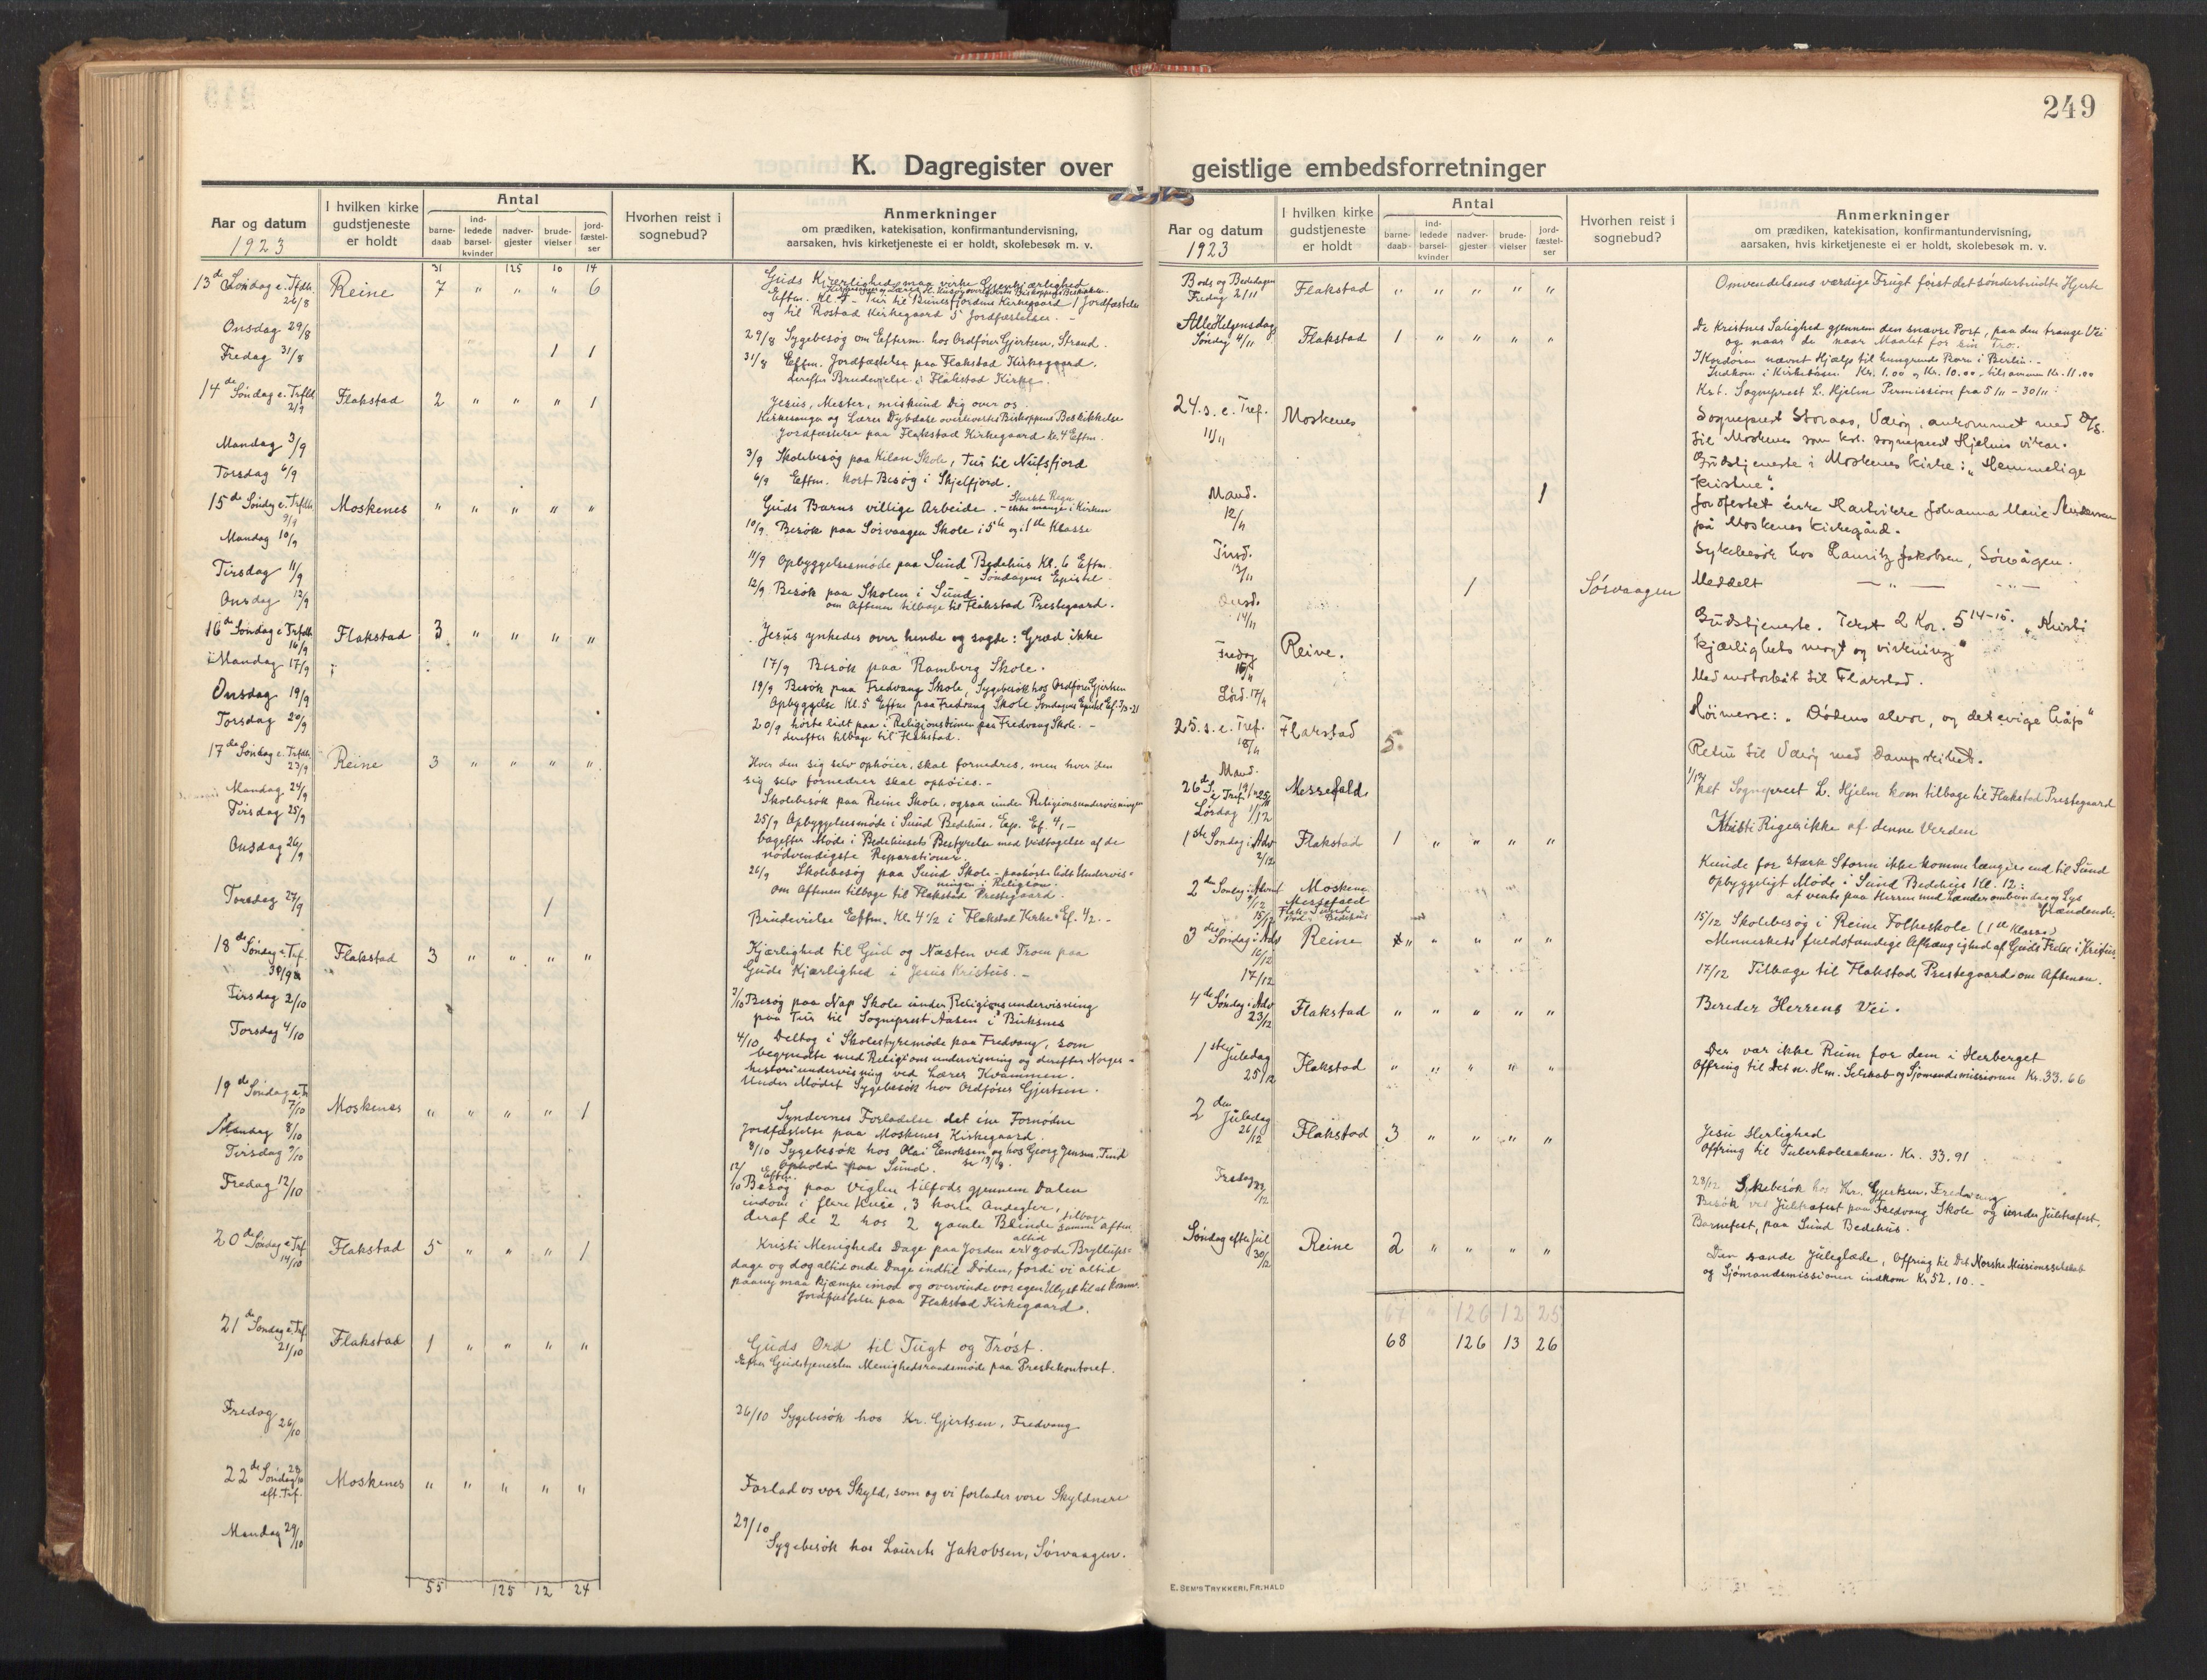 249
K. Dagregister over geistlige embedsforretninger
Aar og datum
1923
I hvilken kirke gudstjeneste er holdt
Antal
barne-daab
ind-ledede barsel-kvinder
nadver-gjester
brude-vielser
jord-fæstel-ser
Hvorhen reist i sognebud?
Anmerkninger
om prædiken, katekisation, konfirmantundervisning,
aarsaken, hvis kirketjeneste ei er holdt, skolebesøk m. v.
31 125 10 14
13de Søndag e. Trfdh. 26/8 Reine 7 " " " 6 Guds Kjærlighed maa virke Gjenkjærlighed
Eftm. Kl. 4 – Tur til Bunesfjordens Kirkegaard 1 Jordfæstelse
og til Rostad Kirkegaard 5 Jordfæstelser. –
Onsdag 29/8 29/8 Sygebesøg om Efterm. hos Ordfører Gjertsen, Strand.
Fredag 31/8 1 1 31/8 Eftm. Jordfæstelse paa Flakstad Kirkegaard.
derefter Brudevielse i Flakstad Kirke.
14de Søndag e. Trfdh. 2/9 Flakstad 2 " " " 1 Jesus, Mester, miskund Dig over os
Kirkesanger og Lærer Dybdahl overleverte Biskoppens Beskikkelse
Jordfæstelse paa Flakstad Kirkegaard Kl. 4 Eftm.
Mandag 3/9 3/9 Skolebesøg paa Kilan Skole, Tur til Nufsfjord
Torsdag 6/9 6/9 Eftm. kort Besøg i Skjelfjord.
15de Søndag e. Trfdh. 9/9 Moskenes " " " " " Guds Barns villige Arbeide. – Stærkt Regn ikke mange i Kirken
Mandag 10/9 10/9 Besøk paa Sørvaagen Skole i 5te og 1ste Klasse
Tirsdag 11/9 11/9 Opbyggelsesmøde paa Sund Bedehus Kl. 6 Eftm.
– Søndagens Epistel –
Onsdag 12/9 12/9 Besøk paa Skolen i Sund.
om Aftenen tilbage til Flakstad Prestegaard.
16de Søndag e Trfdh. 16/9 Flakstad 3 " " " " Jesus ynkedes over hende og sagde: Græd ikke
Mandag 17/9 17/9 Besøk paa Ramberg Skole.
Onsdag 19/9 19/9 Besøk paa Fredvang Skole, Sygebesøk hos Ordfører Gjertsen
Opbyggelse Kl. 5 Eftm paa Fredvang Skole Søndagens Epistel Ef. 3,13-21
Torsdag 20/9 20/9 hørte lidt paa i Religionstimen paa Fredvang Skole. –
derefter tilbage til Flakstad.
17de Søndag e. Trfdh. 23/9 Reine 3 " " " " Hver den sig selv ophøier, skal fornedres, men hver den
sig selv fornedrer skal ophøies. –
Mandag 24/9 Skolebesøk paa Reine Skole, ogsaa under Religionsundervisningen
Tirsdag 25/9 25/9 Opbyggelsesmøde i Sund Bedehus. Exp. Ef. 4, –
bagefter Møde i Bedehusets Bestyrelse med Vidtagelse af de
nødvendigste Reparationer.
Onsdag 26/9 26/9 Skolebesøg paa Sund Skole – paahørte lidt Undervis-
ningen i Religion.
om Aftenen tilbage til Flakstad Prestegaard.
Torsdag 27/9 1 Brudevielse Eftm. Kl. 4 1/2 i Flakstad Kirke. Ef. 4/2. –
18de Søndag e. Trf. 30/9 Flakstad 3 " " " " Kjærlighed til Gud og Næsten ved Troen paa
Guds Kjærlighed i Jesus Kristus. –
Tirsdag 2/10 2/10 Besøg paa Nap Skole under Religionsundervisning
paa Tur til Sogneprest Aasen i Buksnes
Torsdag 4/10 4/10 Deltog i Skolestyremøde paa Fredvang, som
begyndte med Religionsundervisning og derefter Norges-
historiundervisning ved Lærer Kvammen.
Under Mødet Sygebesøk hos Ordfører Gjertsen.
19de Søndag e. Tr. 7/10 Moskenes " " " " 1 Syndernes Forladelse det ene Fornødne
Jordfæstelse paa Moskenes Kirkegaard.
Mandag 8/10 8/10 Sygebesøk hos Olai Enoksen og hos Georg Jensen, Tind
Tirsdag 9/10 Ophold paa Sund.
Fredag 12/10 12/10 Eftm. Besøg paa Viglen tilfods gjennem Dalen
indom i flere Huse, 3 korte Andagter,
deraf de 2 hos 2 gamle Blinde tilbage samme Aften.
20de Søndag e. Trf 14/10 Flakstad 5 " " " 1 Kristi Menigheds Dage paa Jorden er altid gode Bryllups-
dage og dog altid onde Dage indtil Døden, fordi vi altid
paany maa kjæmpe imod og overvinde vor egen Ulyst til at komme.
Jordfæstelse paa Flakstad Kirkegaard.
21de Søndag e. Trf 21/10 Flakstad 1 " " " " Guds Ord til Tugt og Trøst.
Efter Gudstjenesten Menighedsraadsmøde paa Prestekontoret.
Fredag 26/10 26/10 Sygebesøk hos Kr. Gjertsen, Fredvang
22de Søndag 28/10 eft. Trf. Moskenes " " " " " Forlad os vor Skyld, som og vi forlader vore Skyldnere
Mandag 29/10 29/10 Sygebesøk hos Laurits Jakobsen, Sørvaagen.
55 125 12 24
Aar og datum
1923
I hvilken kirke gudstjeneste er holdt
Antal
barne-daab
ind-ledede barsel-kvinder
nadver-gjester
brude-vielser
jord-fæstel-ser
Hvorhen reist i sognebud?
Anmerkninger
om prædiken, katekisation, konfirmantundervisning,
aarsaken, hvis kirketjeneste ei er holdt, skolebesøk m. v.
Bods og Bededagen Fredag 2/11 Flakstad " " " " " Omvendelsens værdige Frugt først det sønderbrudte Hjerte
AlleHelgensdag Søndag 4/11 Flakstad 1 " " " " De Kristnes Salighed gjennem den snævre Port, paa den trange Vei
og naar de naar Maalet for sin Tro.
I Kordøren nævnt Hjælp til hungrende Barn i Berlin. –
Indkom i Kirkebøssen Kr. 1.00 og Kr. 10.00, tilsammen Kr. 11.00
Kst. Sogneprest L. Hjelm Permission fra 5/11 – 30/11
24. s. e. Tref. 11/11 Moskenes Sogneprest Storaas, Værøy, ankommet med D/S.
til Moskenes som kst. sogneprest Hjelms vikar.
Gudstjeneste i Moskenes kirke: "Hemmelige
kristne".
Mand. 12/11 1 Jordfestet enke Johanna Marie
på Moskenes kirkegård.
Tirsd. 13/11 Sykebesøk hos Lauritz Jakobsen, Sørvågen.
Onsd. 14/11 1 Sørvaagen Meddelt — " — — " —
Fredag 16/11 Reine. Gudstjeneste. Text 2 Kor. 5 14-15. "Kristi
kjærlighets magt og virkning"
Lørd. 17/11 Med motorbåt til Flakstad.
25. s. e. Tref. 18/11 Flakstad 5. Høimesse: "Dødens alvor, og det evige håp"
Mand. 19/11 Retur til Værøy med dampskibet.
26de S. e Tref. 25/11 Messefald
Lørdag 1/12 1/12 kst Sogneprest L. Hjelm kom tilbage til Flakstad Prestegaard
1ste Søndag i Adv 2/12 Flakstad 1 " " " " Kristi Rige er ikke af denne Verden
2den Søndag i Advent 9/12 Moskenes Messefald Kunde for stærk Storm ikke komme længere end til Sund
Opbyggeligt Møde i Sund Bedehus Kl. 12:
at vente paa Herren med Lænder ombundne og Lys
brændende.
15/12 15/12 Skolebesøg i Reine Folkeskole (1ste Klasse)
3de Søndag i Adv 16/12 Reine " " " " Menneskets fuldstændige Afhængighed af Guds Frelse i Kristus.
17/12 17/12 Tilbage til Flakstad Prestegaard om Aftenen.
4de Søndag i Adv 23/12 Flakstad " " " " " Bereder Herrens Vei.
1ste Juledag 25/12 Flakstad " " " " " Der var ikke Rum for dem i Herberget
Offring til Det n. Hm. Selskab og Sjømandsmissionen Kr. 33.66
2den Juledag 26/12 Flakstad 3 " " " " Jesu Herlighed
Offring til Tuberkulosesaken. Kr. 33.91
Fredag 28/12 28/12 Sykebesøk hos Kr. Gjertsen, Fredvang
Besøk ved Juletræfest paa Fredvang Skole og under Juletræfest,
Barnefest, paa Sund Bedehus.
Søndag efter Jul 30/12 Reine 2 " " " " Den sande Juleglæde, Offring til Det Norske Missionsselskab
og Sjømandsmissionen indkom Kr 52.10. –
67 " 126 12 25
68 126 13 26
E. SEM'S TRYKKERI, FR.HALD